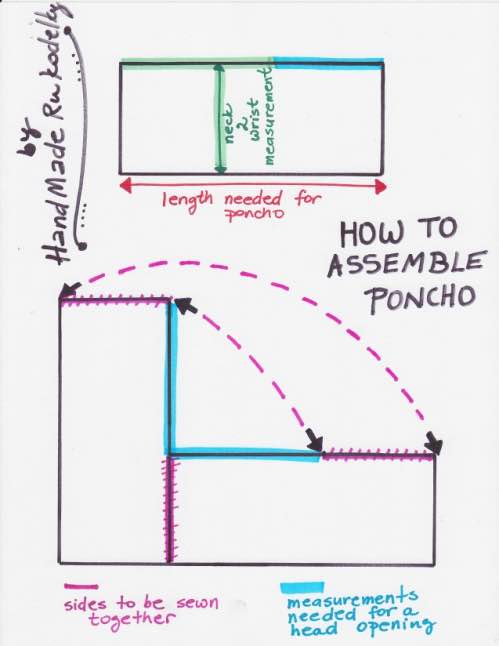 by
HandMade Rukodelky
neck
2
wrist
measurement
length needed for
poncho
HOW TO
ASSEMBLE
PONCHO
sides to be sewn
together
measurements
needed for a
head opening